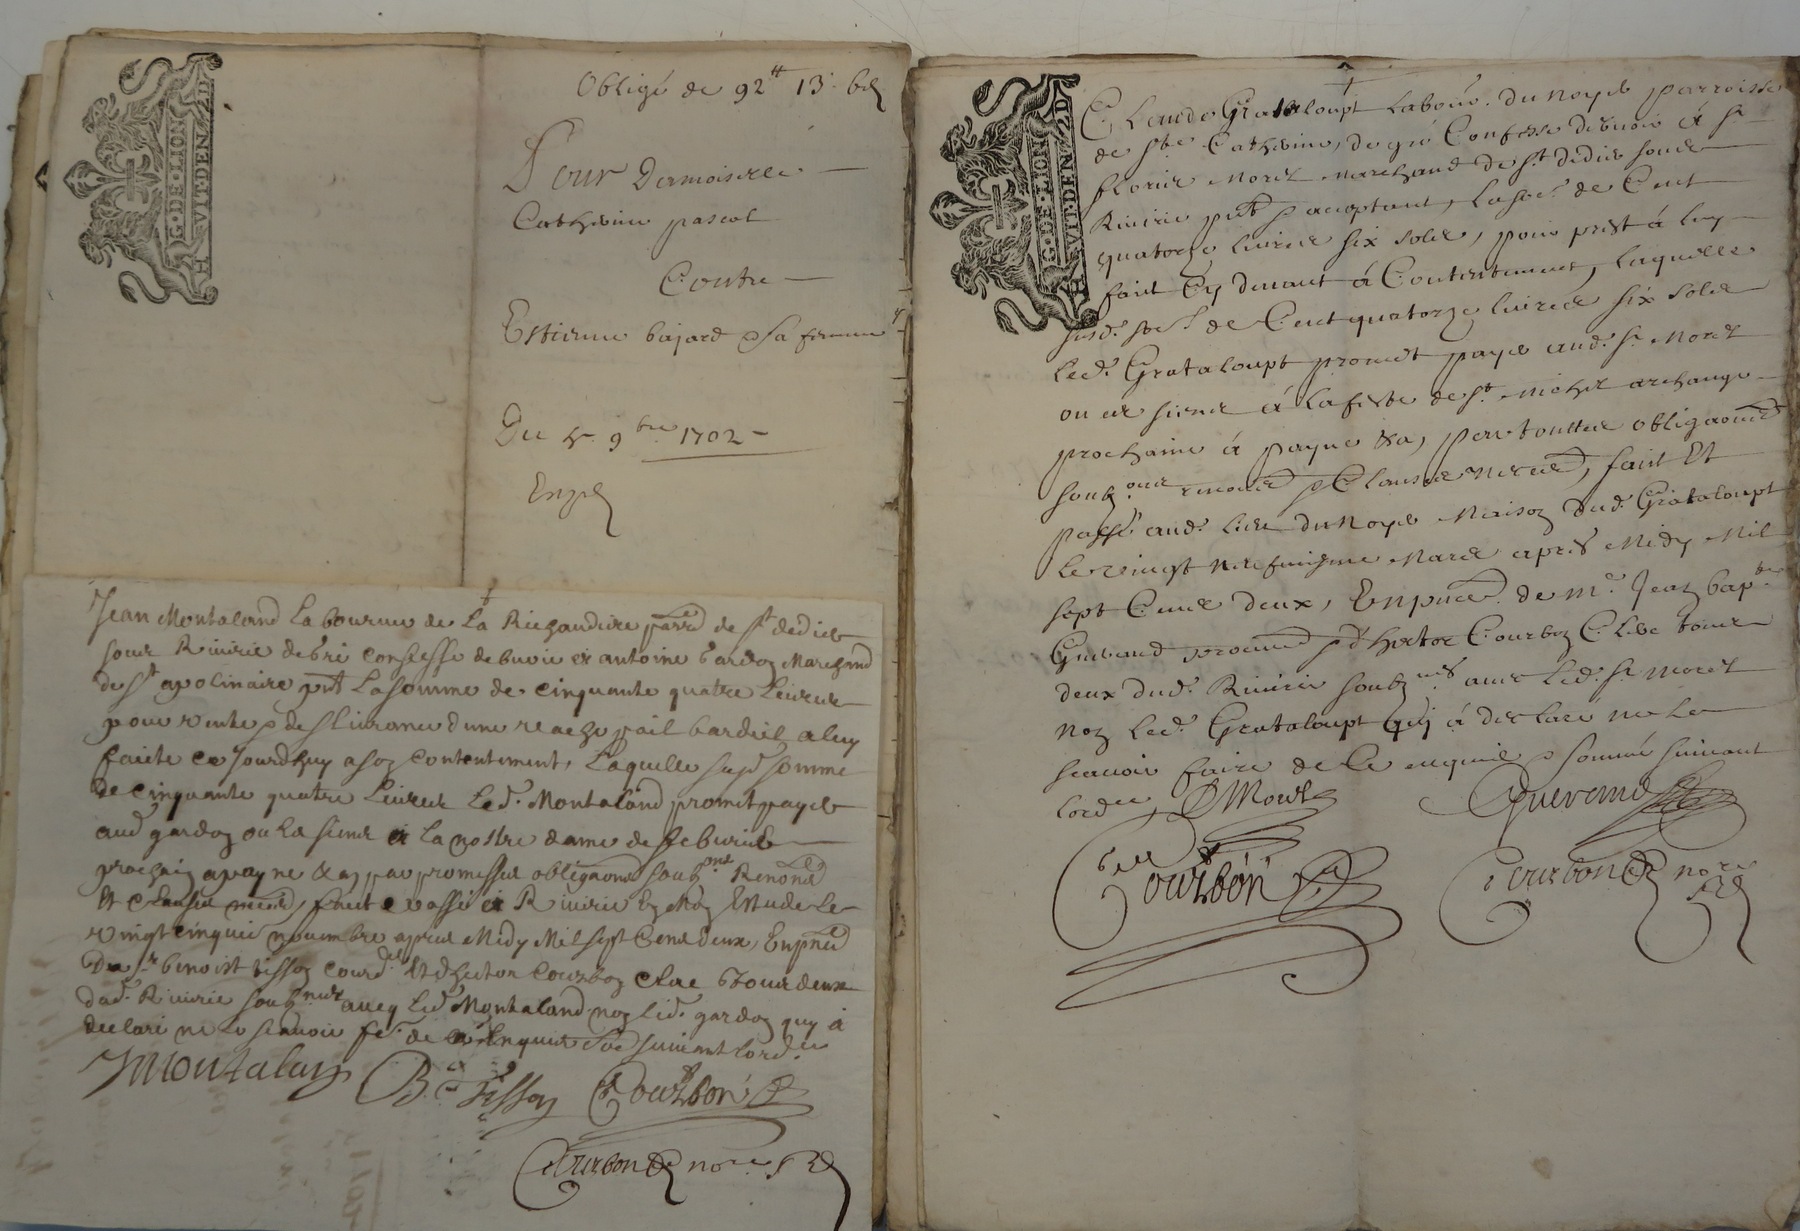 G·DE·LION
HVIT·DEN 2D
Obligé de 92tt 13
Pour Damoiselle
Catherine pascal
Contre
Estienne bajard & sa femme
Du 9bre 1702
Jean Montaland Laboureur de La Richaudiere parred de St dedier
sour Riuirie de gré confesse debuoir a antoine gardon Marchand
de St apolinaire pnt La somme de cinquante quatre Liures
pour vente & desliurance dune vache poil bardeil a luy
faite ce Jourdhuy a son contentement, Laquelle susd somme
de cinquante quatre Liures Led. Montaland promet payer
aud gardon ou les siens a la nostre dame de feburier
prochain a payne &a, par promesses obligaons soubzons Renonds
Et clauses necess, fait & passé a Riuirie En Mon Estude Le
vingt cinquie nouembre apres Midy Mil sept Cens deux, En pnce
Du Sr benoist tisson & dhector Courbon clerc tous deux
dud. Riuirie soubznes auecq Led Montaland non Led. gardon quy a
declaré ne le scauoir fe. de ce Enquis & suiuant lord.ce
Montaland B. Tisson Courbon
Courbon nore
Claude Grataloupt Labour. du noyer parroisse
de Ste Catherine, de gré Confesse debuoir a Sr
florier Morel Marchand de St didier soubs
Riuirie pnt & acceptant, La soe. de Cent
quatorze liures six solz, pour prest a luy
fait Cy deuant a Contentement, laquelle
susd. soe. de Cent quatorze liures six solz
Led. Grataloupt promet payer aud. Sr Morel
ou es siens a La feste de St Michel archange
prochaine a payne &a, par touttes obligaons
soubzons renonce & Clauses necess, fait Et
passé aud. lieu du Noyer Maison dud. Grataloupt
Le vingt neufuiesme Mars apres Midy Mil
sept Cens deux, En pnce de Me Jean bapte
Gueraud & dhector Courbon Clerc tous
deux dud. Riuirie soubznes auec Led. Sr morel
non Led. Grataloupt quj a declaré ne le
scauoir faire de Ce enquis & sommé suiuant
lordce Morel Gueraud
Courbon Courbon nore